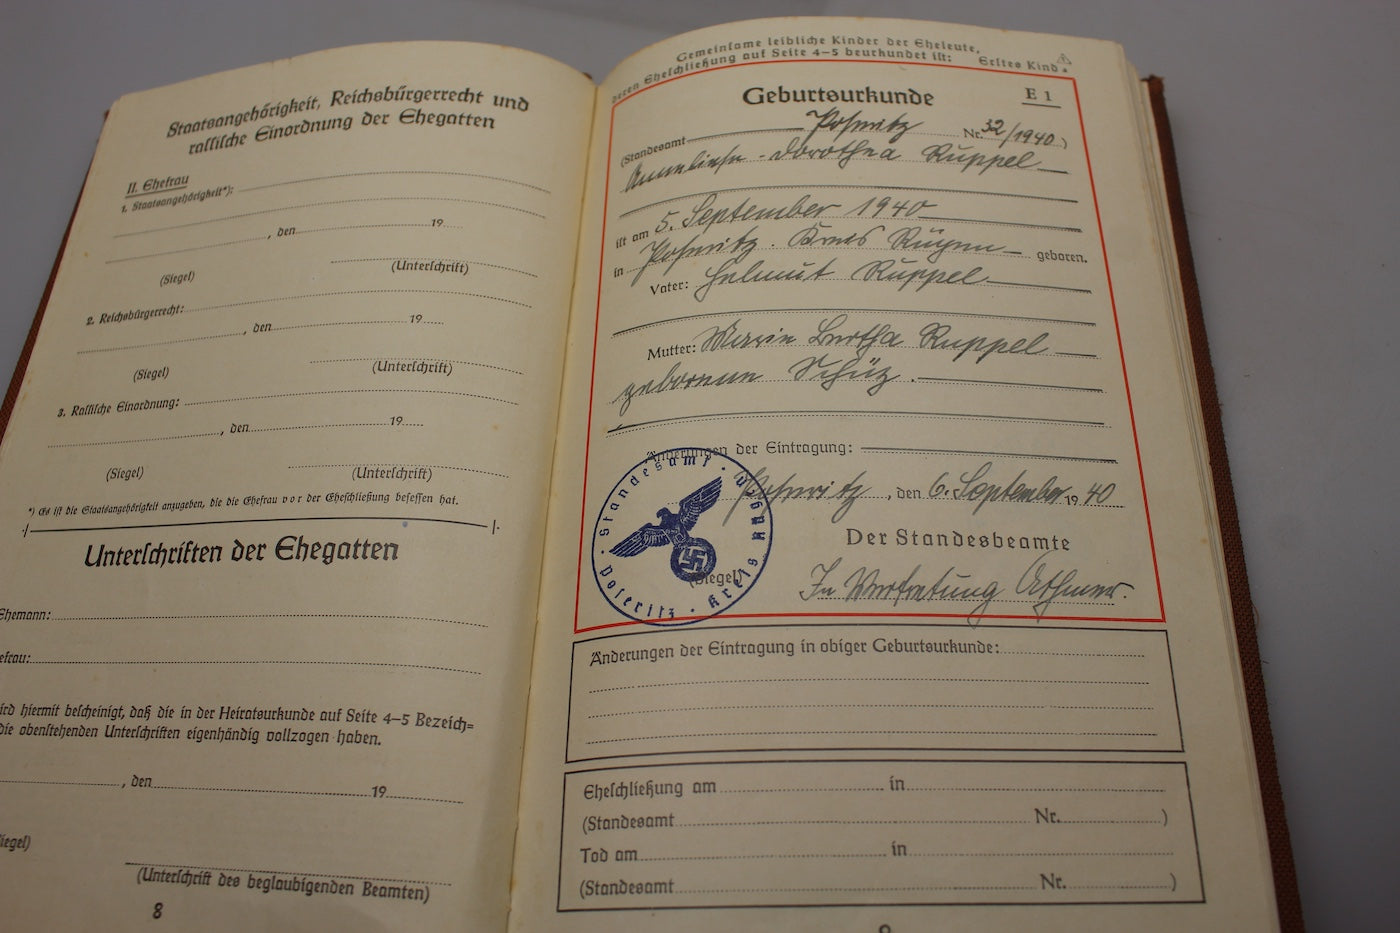 Staatsangehörigkeit, Reichsbürgerrecht und
rassische Einordnung der Ehegatten
II. Ehefrau
1. Staatsangehörigkeit*):
, den 19
(Siegel) (Unterschrift)
2. Reichsbürgerrecht:
, den 19
(Siegel) (Unterschrift)
3. Rassische Einordnung:
, den 19
(Siegel) (Unterschrift)
*) Es ist die Staatsangehörigkeit anzugeben, die die Ehefrau vor der Eheschließung besessen hat.
Unterschriften der Ehegatten
Ehemann:
efrau:
ird hiermit bescheinigt, daß die in der Heiratsurkunde auf Seite 4–5 Bezeich=
die obenstehenden Unterschriften eigenhändig vollzogen haben.
, den 19
iegel)
(Unterschrift des beglaubigenden Beamten)
8
Gemeinsame leibliche Kinder der Eheleute,
deren Eheschließung auf Seite 4–5 beurkundet ist: Erstes Kind
Geburtsurkunde E 1
(Standesamt Poseritz Nr. 32/1940)
Anneliese - Dorothea Ruppel
ist am 5. September 1940
in Poseritz. Kreis Rügen geboren.
Vater: Helmut Ruppel
Mutter: Marie Bertha Ruppel
geborene Schüz.
Änderungen der Eintragung:
Poseritz, den 6. September 1940
Standesamt · Poseritz · Kreis Rügen
(Siegel)
Der Standesbeamte
In Vertretung
Änderungen der Eintragung in obiger Geburtsurkunde:
Eheschließung am in
(Standesamt Nr. )
Tod am in
(Standesamt Nr. )
9